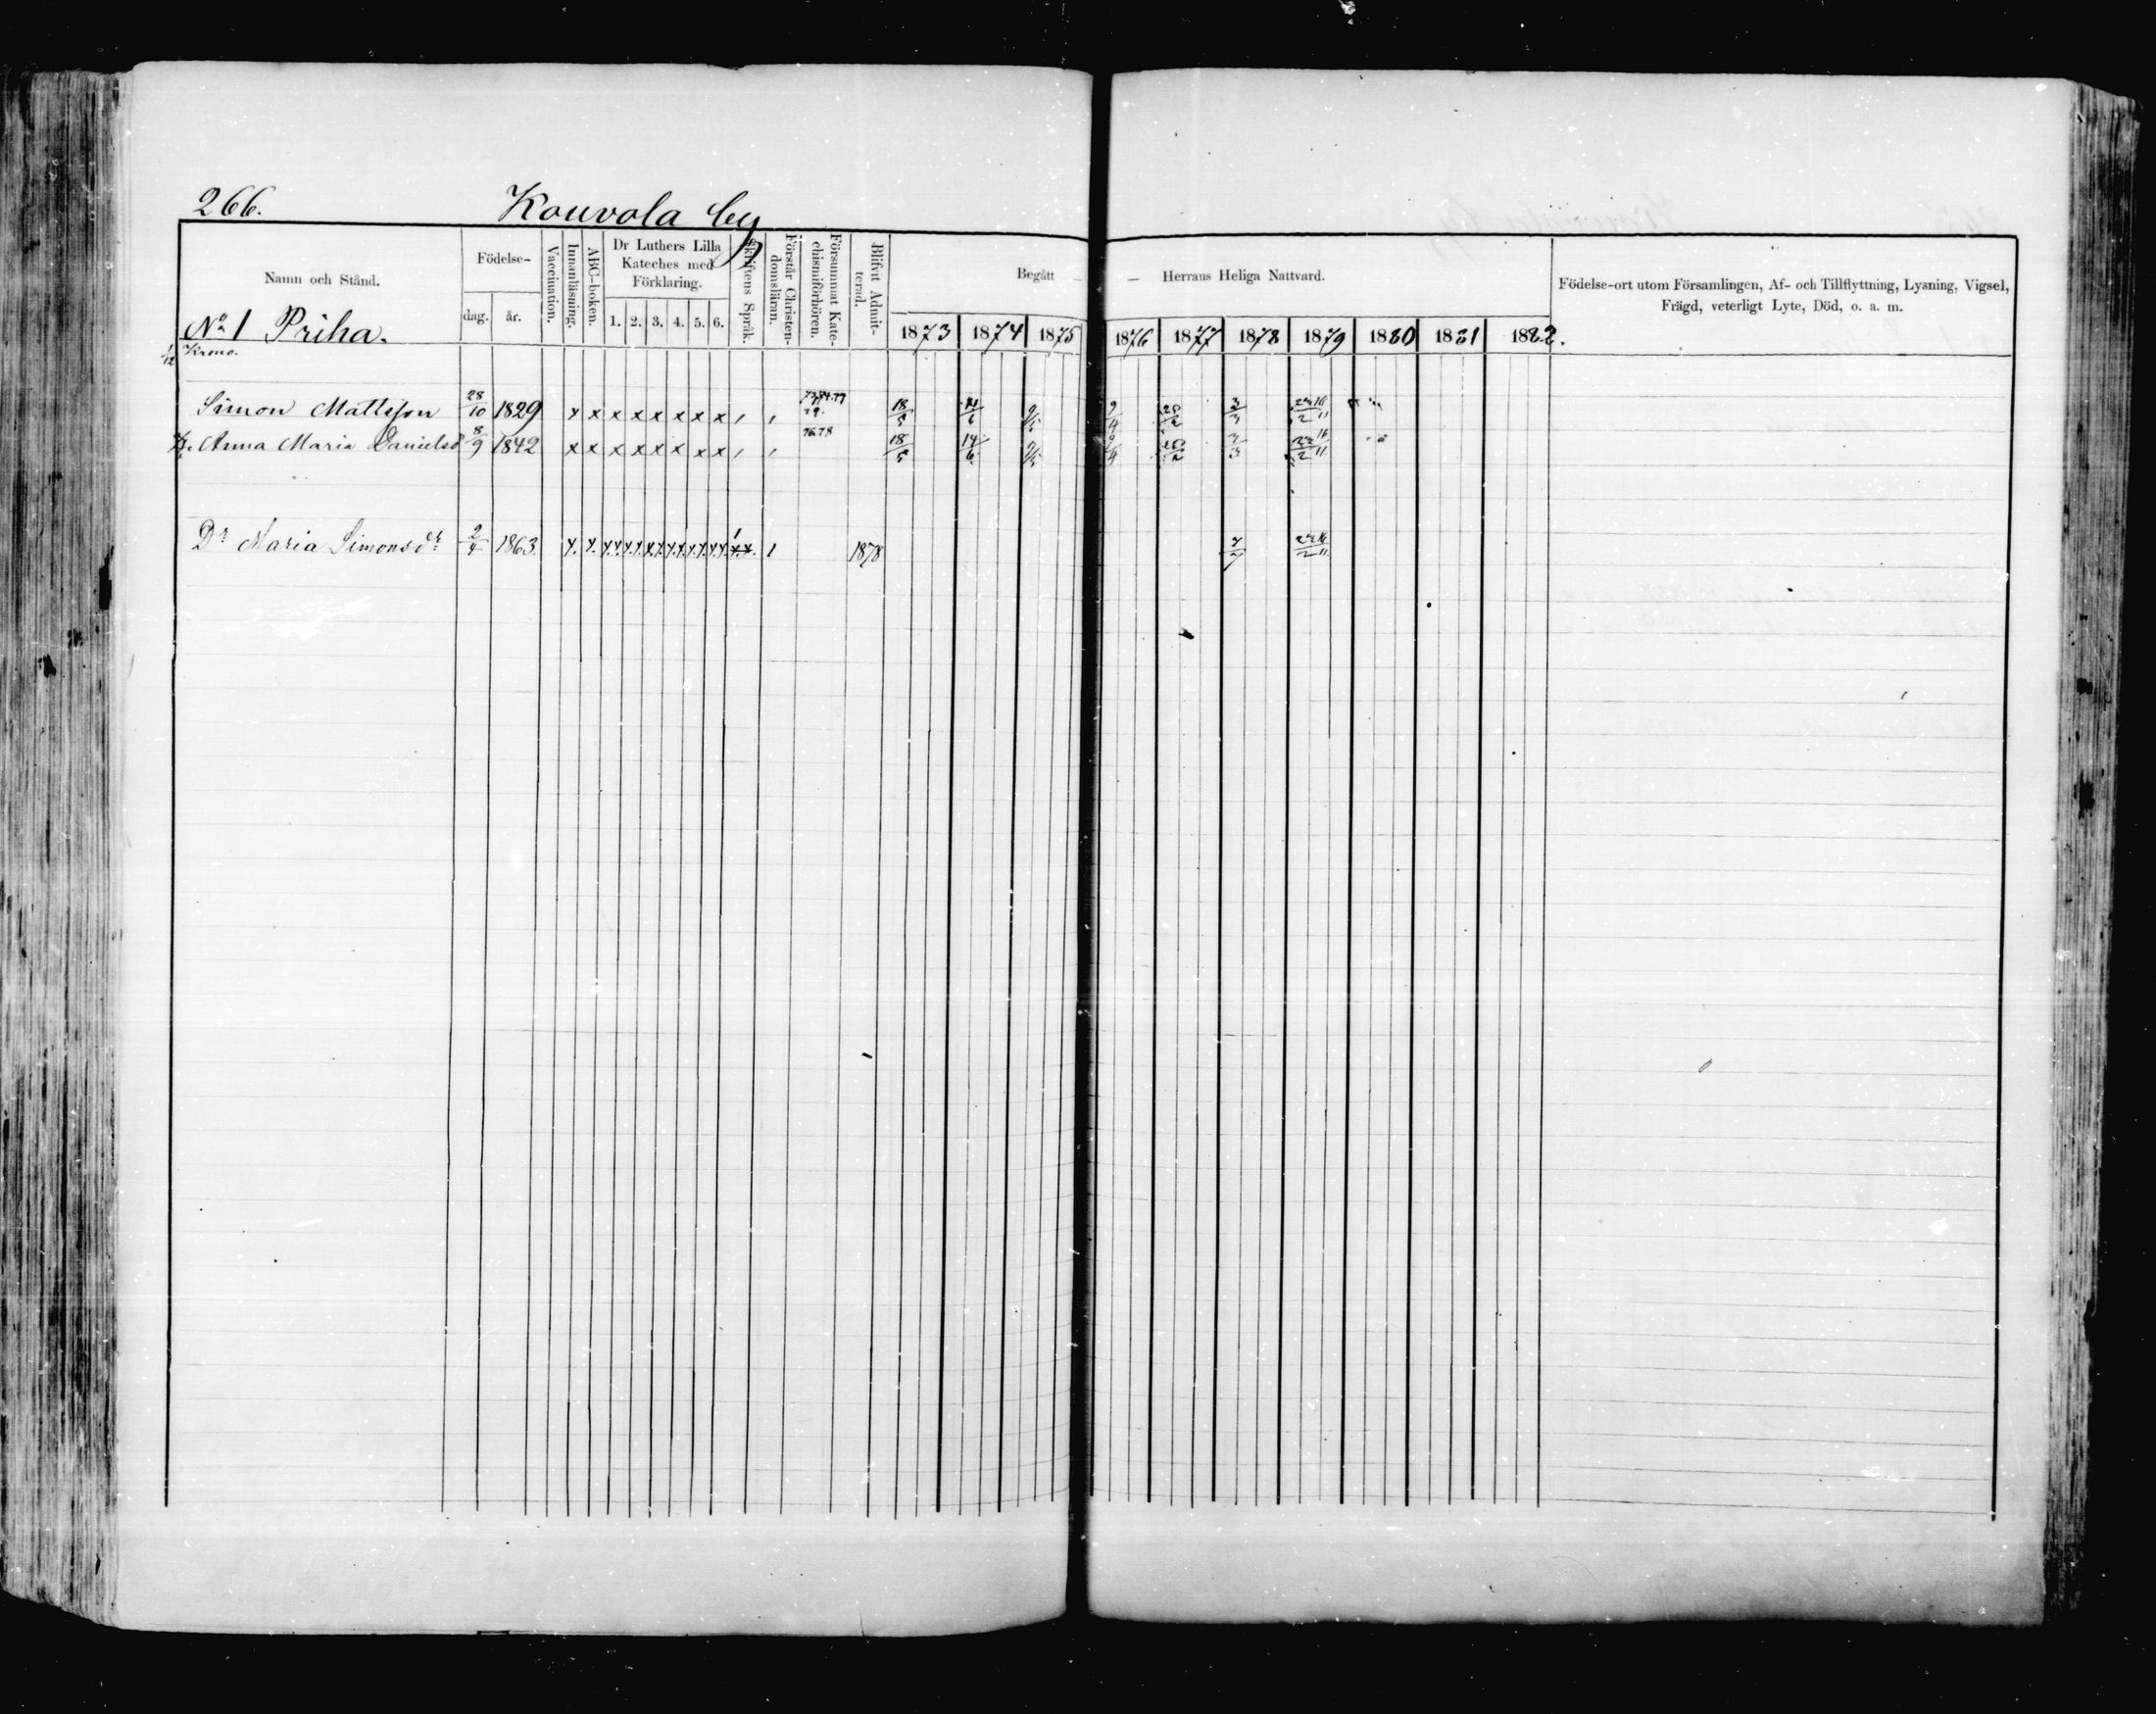 266.
Kouvola by
Namn och Stånd.
Födelse-
dag.
år.
Vaccination.
Innanläsning.
ABC-boken.
Dr Luthers Lilla
Kateches med
Förklaring.
1. 2. 3. 4. 5. 6.
Skriftens Språk.
Förstår Christen-
domsläran.
Försummat Kate-
chismiförhören.
Blifvit Admit-
terad.
Begått — — Herrans Heliga Nattvard.
1873 1874 1875 1876 1877 1878 1879 1880 1881 1882.
Födelse-ort utom Församlingen, Af- och Tillflyttning, Lysning, Vigsel,
Frägd, veterligt Lyte, Död, o. a. m.
No 1 Priha.
1/12 Krono.
Simon Mattsson 28/10 1829 x x x x x x x x 18/5 9/4 3/3
Anna Maria Danielsd 8/9 1842 x x x x x x x x 76.78 18/5 14/6 9/4
Dr Maria Simonsdr 2/4 1863. 1878